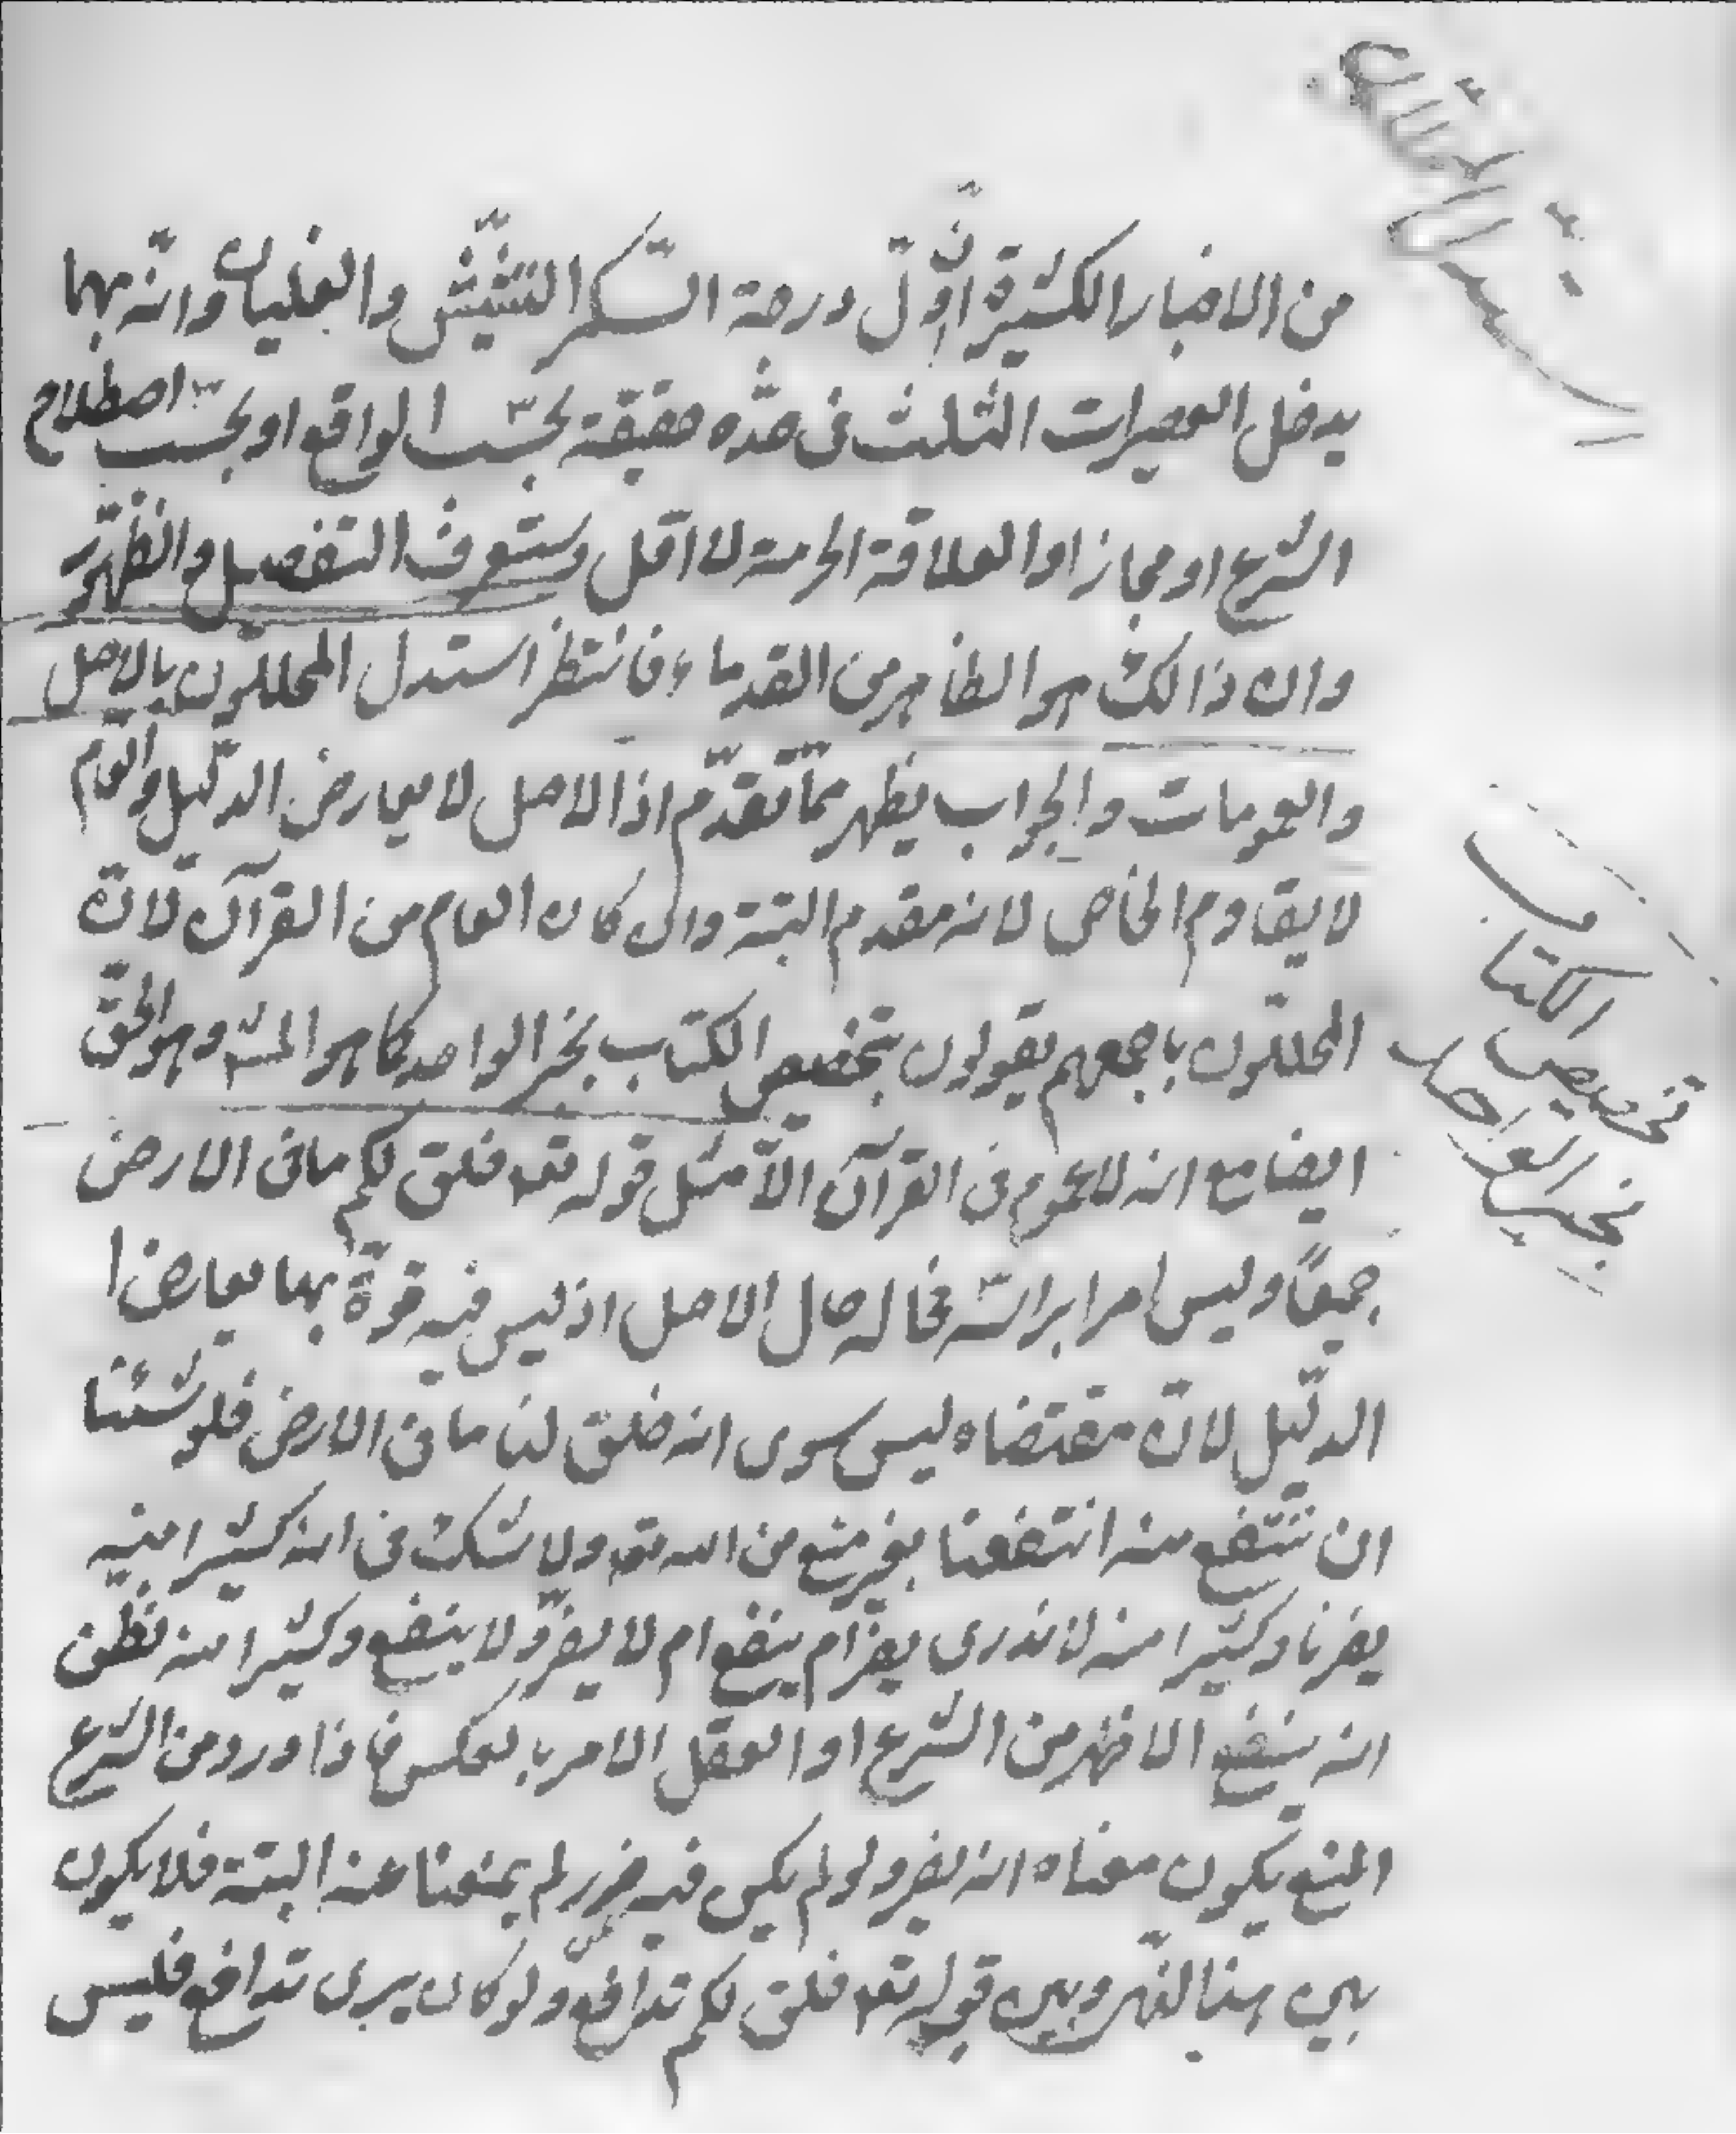 من الاخبار الكثيرة انّ اوّل درجة السّكر التنشيش والغليان وانّه بهما
يدخل العصيرات الثلث في حدّه حقيقة بحسب الواقع او بحسب اصطلاح
الشرع او مجازا والعلاقة الحرمة لا اقل وستعرف التفصيل وانظهر
وان ذالك هو الظاهر من القدماء فانتظر استدل المحلّلون بالاصل
والعمومات والجواب يظهر ممّا تقدّم اذ الاصل لا يعارض الدّليل والعام
لا يقاوم الخاص لانه مقدم البتة وان كان العام من القرآن لانّ
المحلّلون باجمعهم يقولون بتخصيص الكتاب بخبر الواحد كما هو المشهـ وهو الحقّ
ايضا مع انه لا عموم في القرآن الّا مثل قوله تعـ خلق لكم ما في الارض
جميعًا وليس امرا براسه فحاله حال الاصل اذ ليس فيه قوّة بها يعارض
الدّليل لانّ مقتضاه ليس سوى انه خلق لنا ما في الارض فلو شئنا
ان ننتفع منه انتفعنا بغير منع من الله تعـ ولا شك في انه كثيرا منه
يضرنا وكثيرا منه لا ندرى يضرّ ام ينفع ام لا يضرّ ولا ينفع وكثيرا منه نظنّ
انه ينفع الا ظهر من الشرع او العقل الامر بالعكس فاذا ورد من الشرع
المنع يكون معناه انه يضر ولو لم يكن فيه ضرر لم يمنعنا عنه البتة فلا يكون
بين هذا النهى وبين قوله تعـ خلق لكم تدافع ولو كان يرى تدافع فليس
تخصيص الكتاب
بخبر الواحد